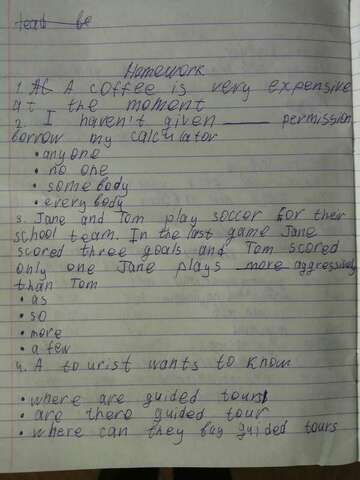 lead be
Homework
1. At A coffee is very expensive
at the moment
2. I haven't given ____ permission
borrow my calculator
• anyone
• no one
• somebody
• everybody
3. Jane and Tom play soccer for their
school team. In the last game Jane
scored three goals and Tom scored
only one Jane plays more aggressively
than Tom
• as
• so
• more
• a few
4. A tourist wants to know
• where are guided tours
• are there guided tour
• where can they buy guided tours